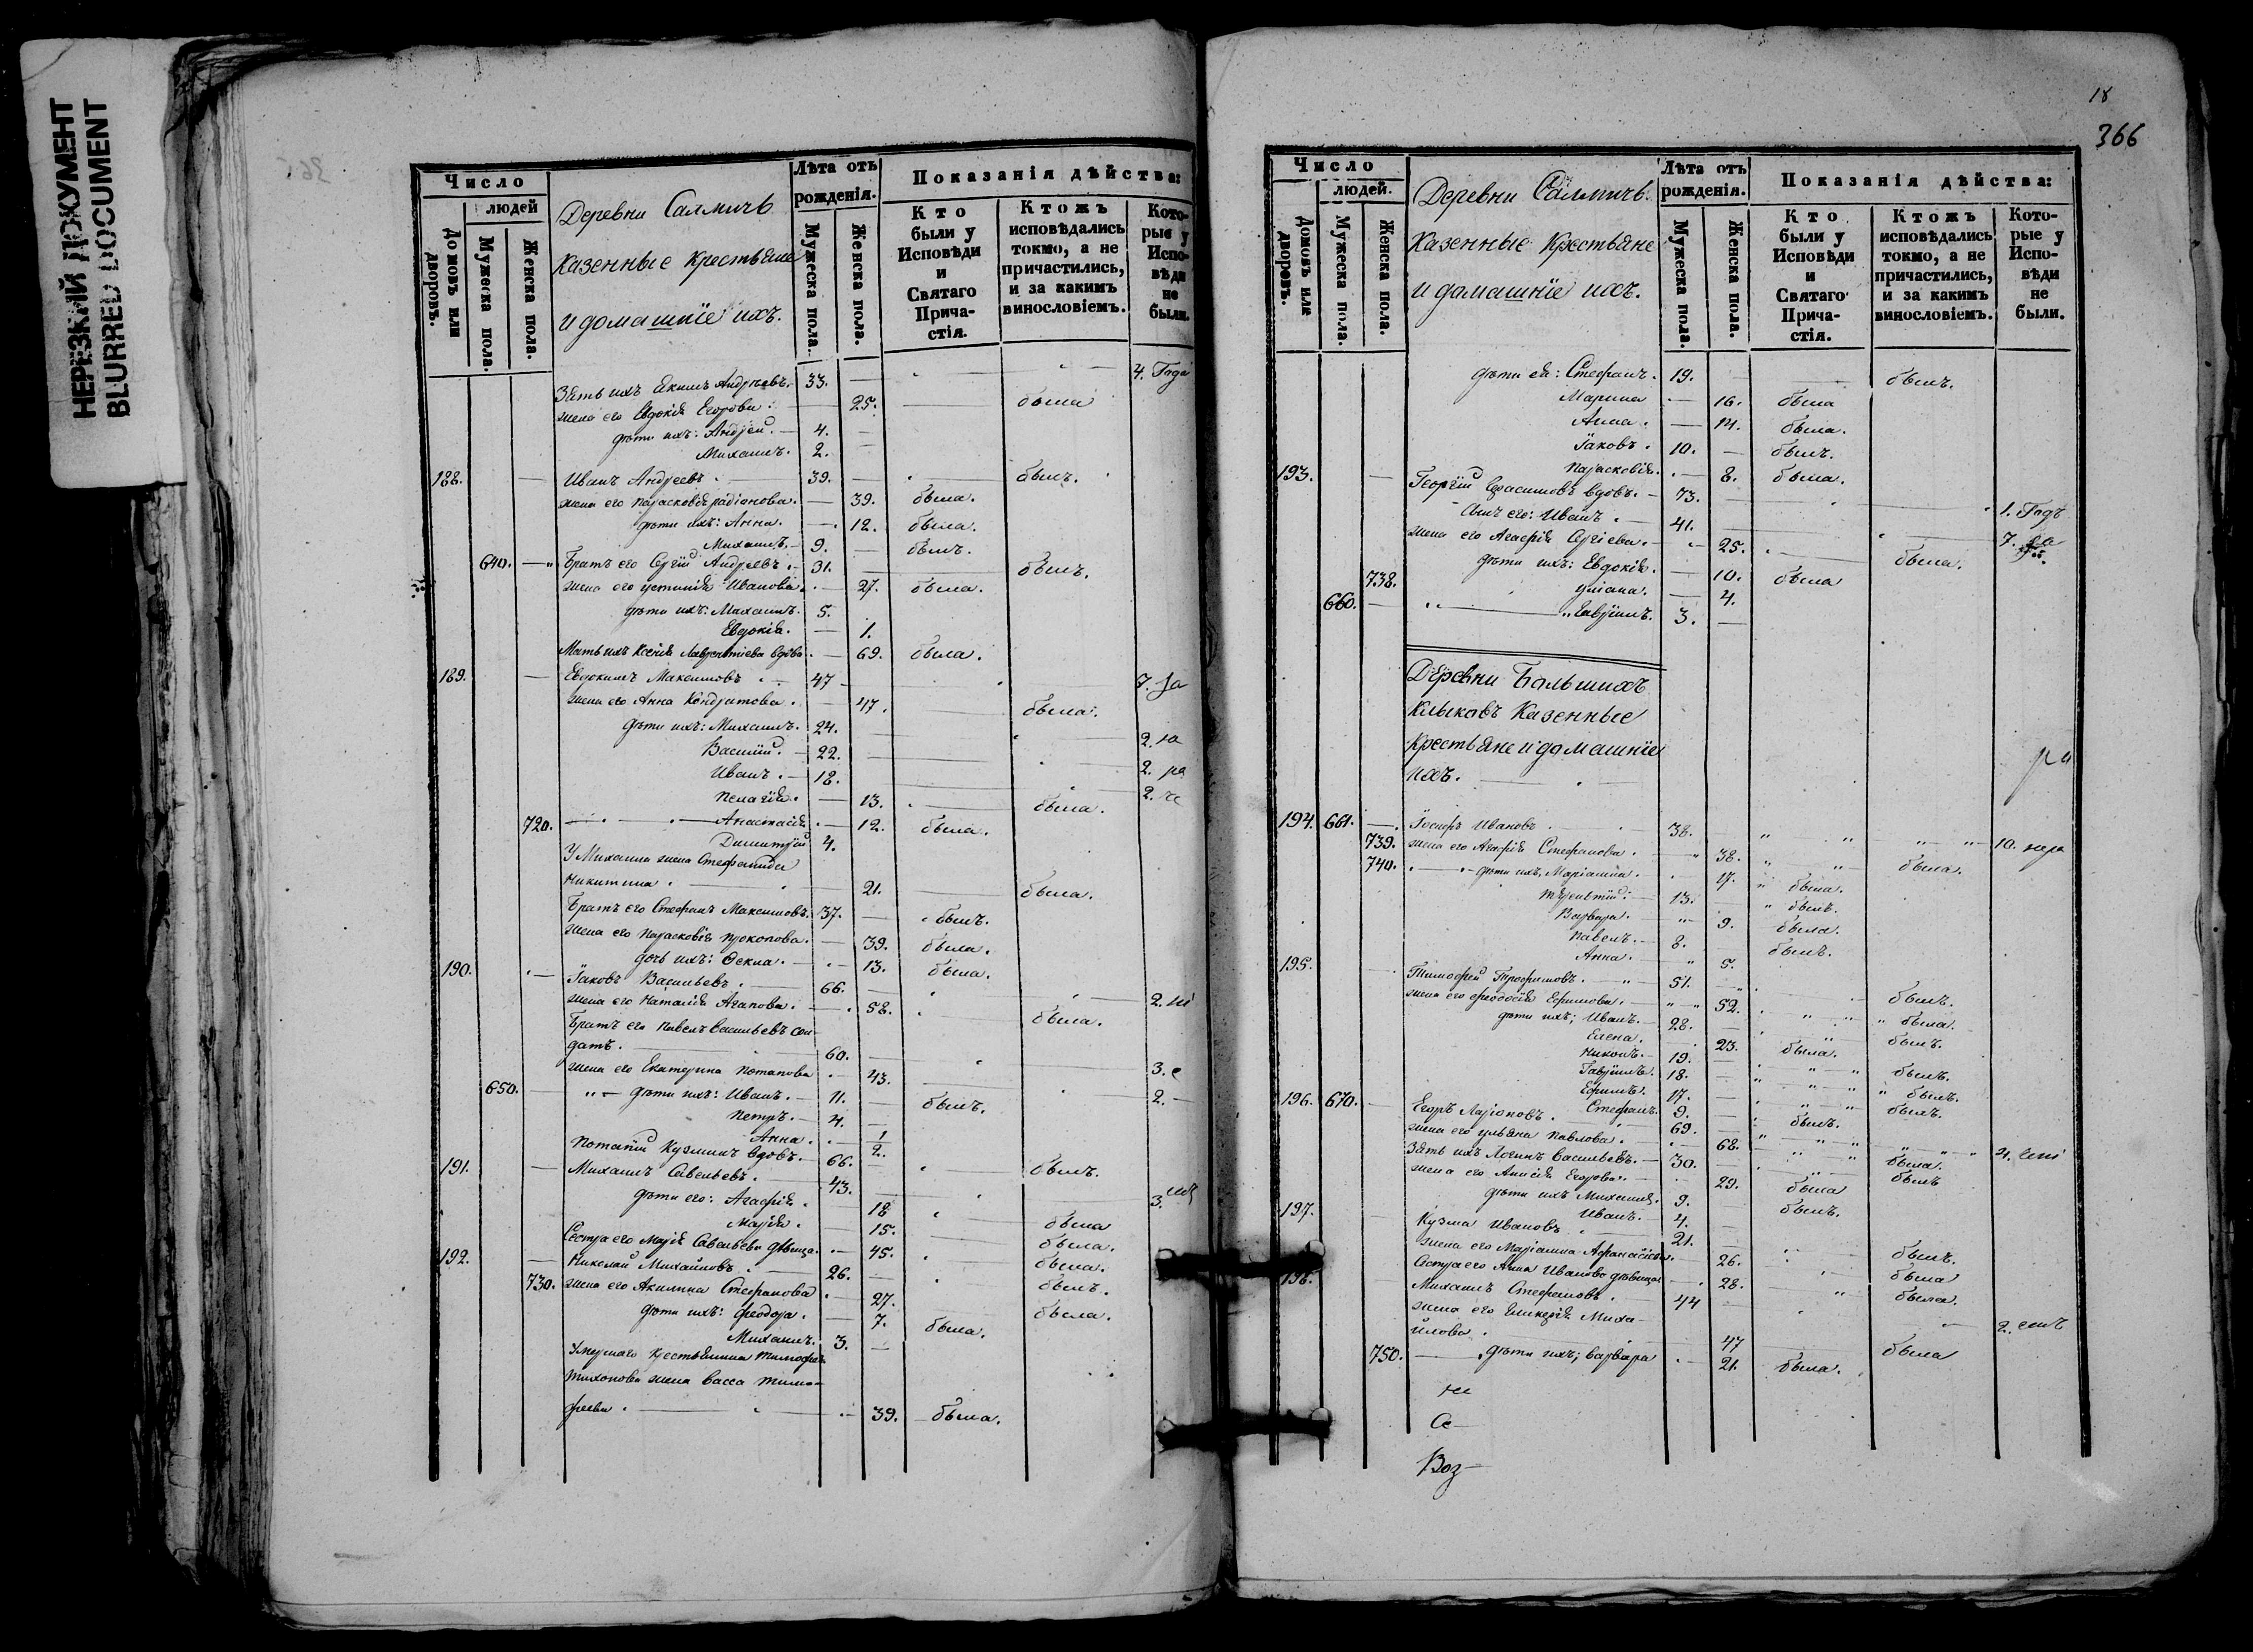 НЕРЕЗКИЙ ДОКУМЕНТ
BLURRED DOCUMENT
Число
людей
Домовъ или дворовъ.
Мужеска пола.
Женска пола.
Деревни Салмичъ
Казенные Крестьяне
и домашніе ихъ.
Лѣта отъ рожденія.
Мужеска пола.
Женска пола.
Показанія дѣйства:
Кто были у Исповѣди и Святаго Причастія.
Ктожъ исповѣдались токмо, а не причастились, и за какимъ винословіемъ.
Которые у Исповѣди не были.
Зять ихъ Екимъ Андреевъ. 33. 4. Года
жена его Евдокія Егорова. 25. была
дѣти ихъ: Андрей. 4.
Михаилъ. 2.
188. Иванъ Андреевъ 39. былъ.
жена его Парасковія Радіонова. 39. была.
дѣти ихъ: Анна. 12. была.
Михаилъ. 9. былъ.
640. Братъ его Сергій Андреевъ. 31. былъ.
жена его Устинія Иванова. 27. была.
дѣти ихъ: Михаилъ. 5.
Евдокія. 1.
Мать ихъ Ксенія Лаврентіева вдова 69. была.
189. Евдокимъ Максимовъ 47 7.
жена его Анна Кондратова. 47. была.
дѣти ихъ: Михаилъ. 24. 2.
Василій. 22. 2.
Иванъ. 18. 2.
Пелагія. 13. была.
720. Анастасія 12. была.
Димитрій 4.
У Михаила жена Стефанида
Никитина. 21. была.
Братъ его Стефанъ Максимовъ. 37. былъ.
жена его Парасковія Прокопова. 39. была.
дочь ихъ: Ѳекла. 13. была.
190. Іаковъ Васильевъ. 66. 2.
жена его Наталія Агапова. 58. была.
Братъ его Павелъ Васильевъ сол-
датъ. 60. 3.
жена его Екатерина Потапова 43. 2.
650. дѣти ихъ: Иванъ. 11. былъ.
Петръ. 4.
Анна. 1/2.
Потапій Кузминъ вдовъ. 66. былъ.
191. Михаилъ Савельевъ. 43. 3.
дѣти его: Агафія. 18 была
Марія. 15. была.
Сестра его Марія Савельева дѣвица. 45. была.
192. Николай Михайловъ. 26. былъ.
730. жена его Акилина Стефанова 27. была.
дѣти ихъ: Феодора. 7. была.
Михаилъ. 3.
Умершаго крестьянина Тимофея
Тихонова жена Васса Тимо-
феева. 39. была.
18
366
Число
людей.
Домовъ или дворовъ.
Мужеска пола.
Женска пола.
Деревни Салмичъ.
Казенные Крестьяне
и домашніе ихъ.
Лѣта отъ рожденія.
Мужеска пола.
Женска пола.
Показанія дѣйства:
Кто были у Исповѣди и Святаго Причастія.
Ктожъ исповѣдались токмо, а не причастились, и за какимъ винословіемъ.
Которые у Исповѣди не были.
дѣти ея: Стефанъ. 19. былъ.
Марина 16. была
Анна. 14. была.
Іаковъ. 10. былъ.
Парасковія. 8. была.
193. Георгій Герасимовъ вдовъ. 73. 1. Годъ
Сынъ его: Иванъ. 41. 7.
жена его Агафія Сергіева. 25. была.
дѣти ихъ: Евдокія. 10. была
738. Уліана. 4.
660. Гавріилъ. 3.
Деревни Большихъ
Клыковъ Казенные
Крестьяне и домашніе
ихъ.
194. 661. Іосифъ Ивановъ 38. 10.
739. жена его Агафія Стефанова. 38. была.
740. дѣти ихъ, Маріамна. 17. была.
Терентій. 13. былъ.
Варвара. 9. была.
Павелъ. 8. былъ.
Анна. 5.
195. Тимофей Трофимовъ. 51. былъ.
жена его Феодосія Ефимова. 52. была.
дѣти ихъ; Иванъ. 28. былъ.
Елена. 23. была.
Никонъ. 19. былъ.
Гавріилъ. 18. былъ.
Ефимъ. 17. былъ.
Стефанъ. 9. былъ.
196. 670. Егоръ Ларіоновъ. 69. 4.
жена его Ульяна Павлова. 68. была.
Зять ихъ Логинъ Васильевъ. 30. былъ
жена его Анисія Егорова. 29. была
дѣти ихъ Михаилъ. 9. былъ.
Иванъ. 4.
197. Кузма Ивановъ 21. былъ.
жена его Маріамна Афанасіева. 26. была
Сестра его Анна Иванова дѣвица 28. была.
198. Михаилъ Стефановъ. 44 2.
жена его Гликерія Миха-
йлова. 47 была
750. дѣти ихъ; Варвара 21. была.
Се-
Воз-